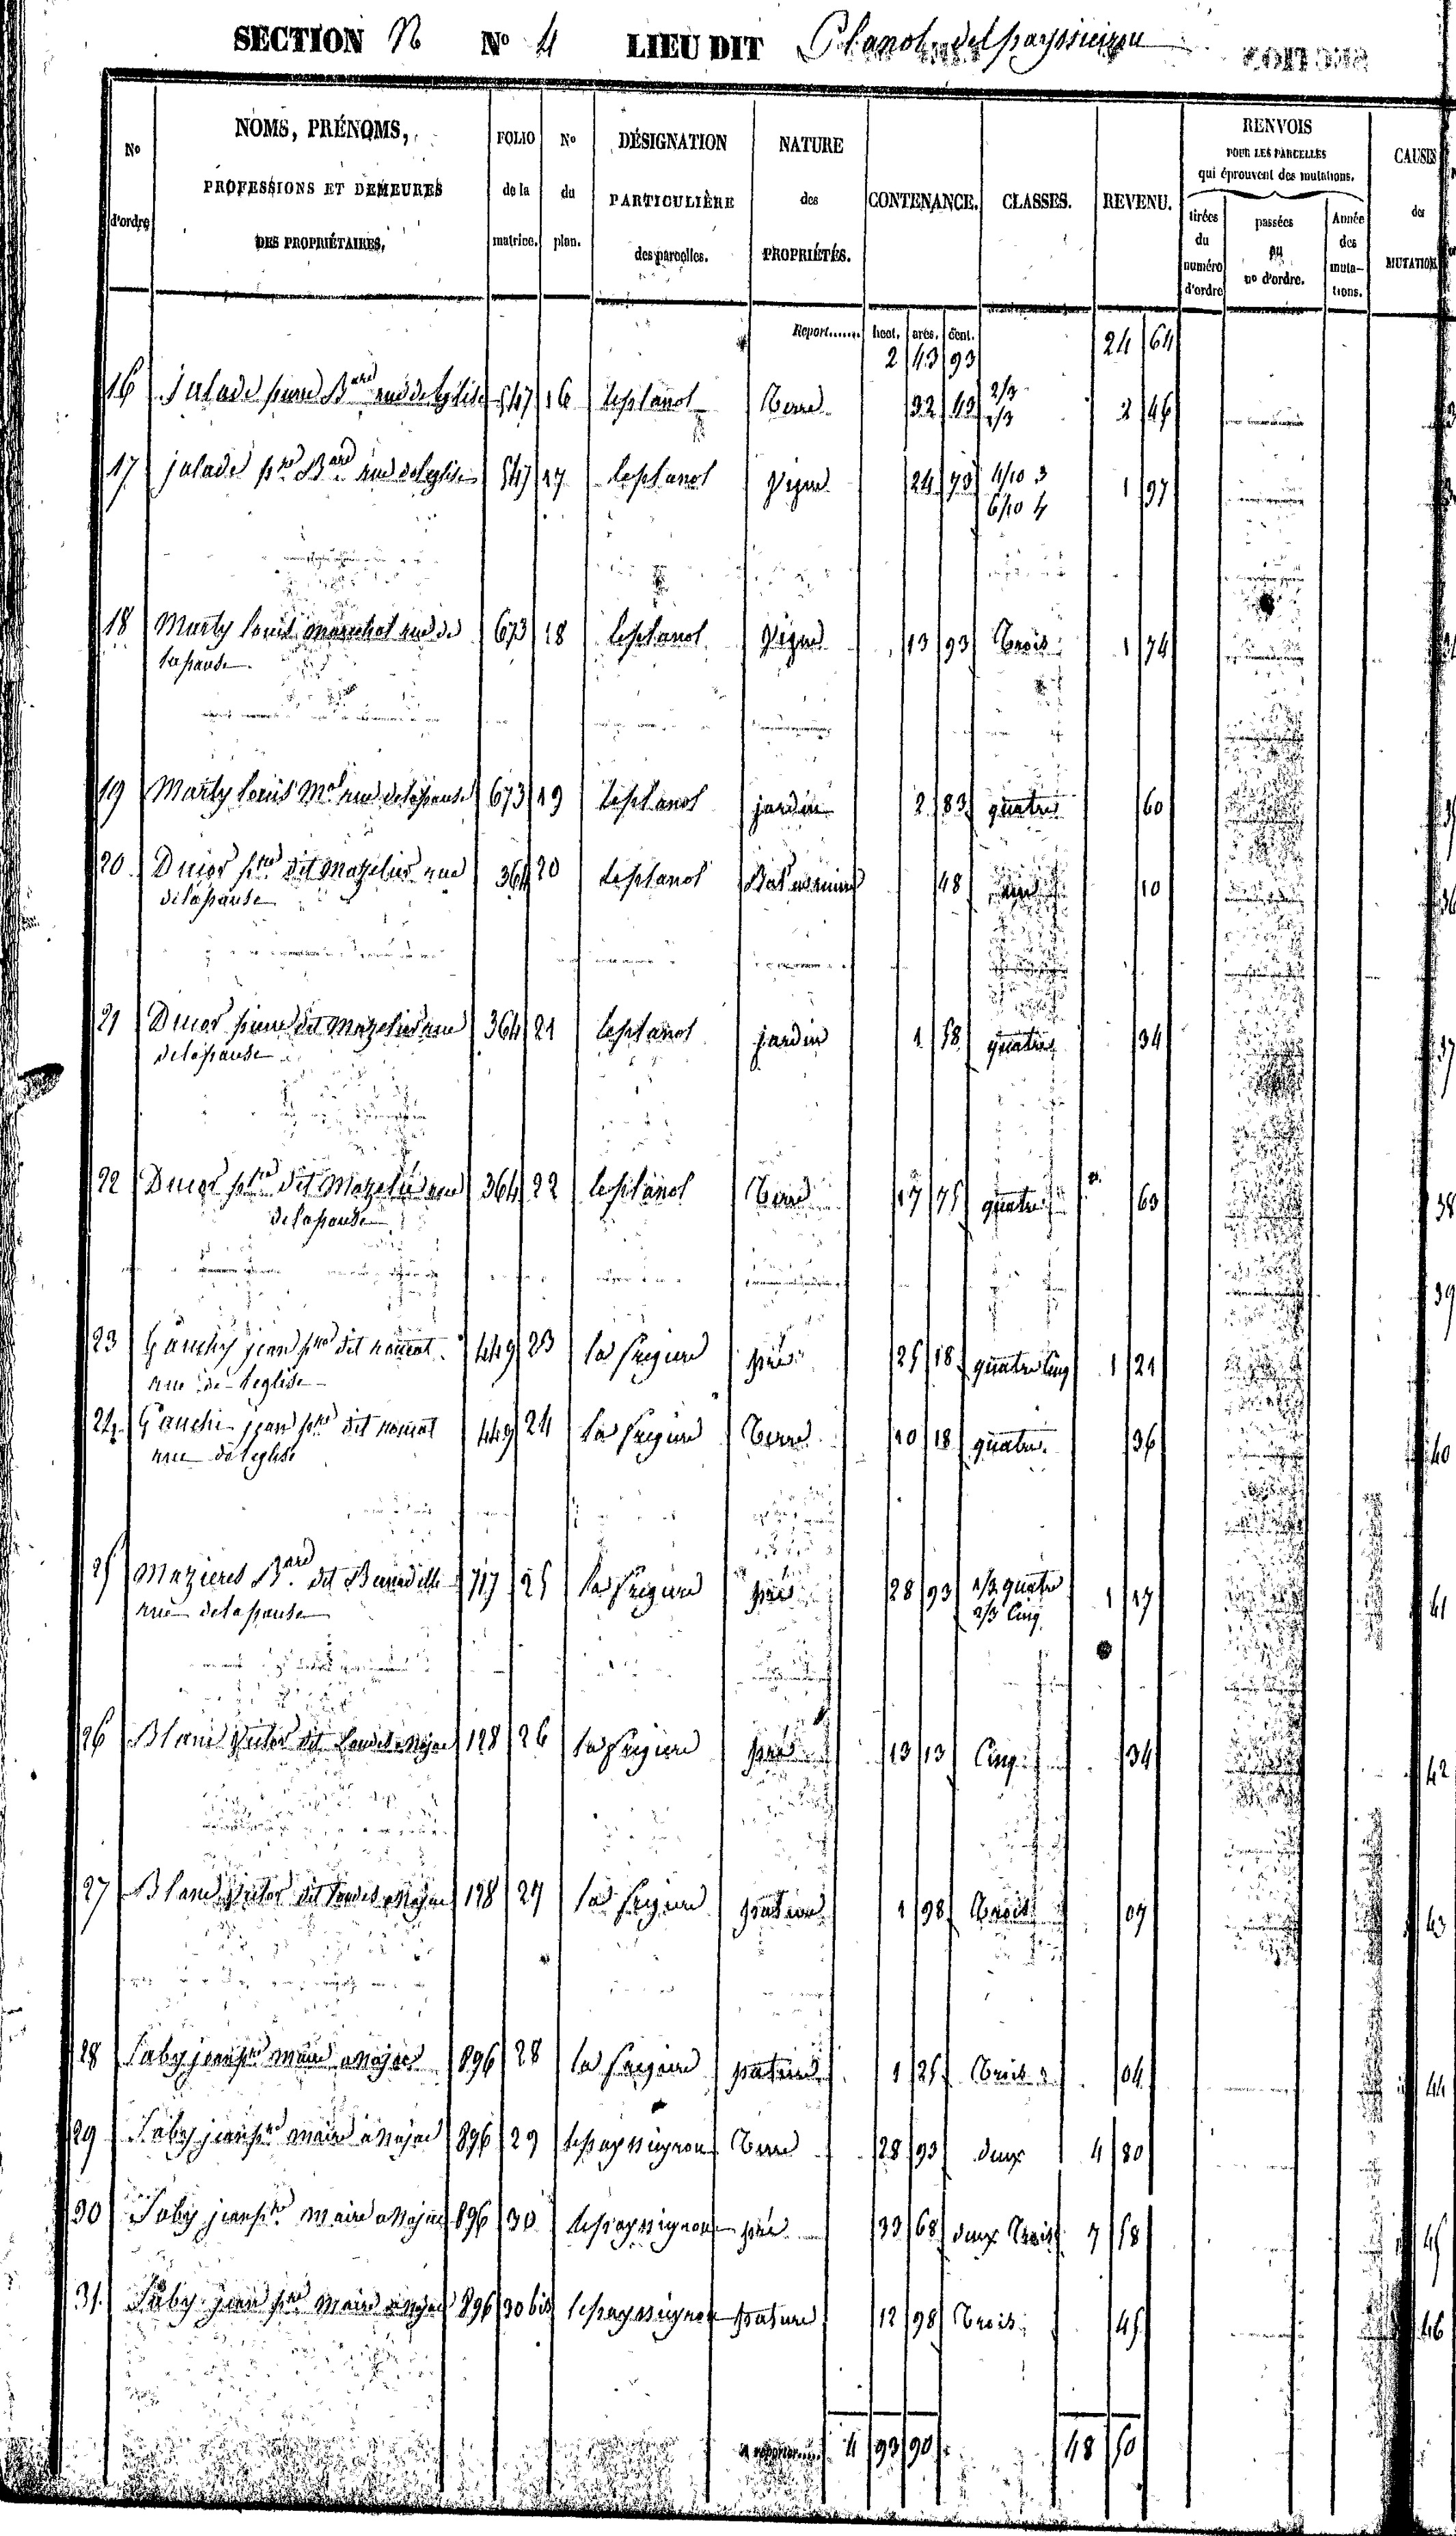 SECTION N N° 4 LIEU DIT Planol del payssieirou
N° d'ordre
NOMS, PRÉNOMS, PROFESSIONS ET DEMEURES DES PROPRIÉTAIRES,
FOLIO de la matrice.
N° du plan.
DÉSIGNATION PARTICULIÈRE des parcelles.
NATURE des PROPRIÉTÉS.
CONTENANCE.
CLASSES.
REVENU.
RENVOIS POUR LES PARCELLES qui éprouvent des mutations.
tirées du numéro d'ordre
passées au n° d'ordre.
Année des mutations.
CAUSES des MUTATIONS
Report...... hect. ares. cent.
2 43 93 24 64
16 jalade pierre Bard rue de leglise 547 16 leplanol Terre 32 43 2/3 2 46
17 jalade pre Bard rue de leglise 547 17 leplanol vigne 24 73 4/10 3 1 97
6/10 4
18 Marty louis marechal rue de 673 18 leplanol vigne 13 93 Trois 1 74
lapause
19 Marty louis Mal rue delapause 673 19 leplanol jardin 2 83 quatre 60
20 Ducor pre dit Mazelier rue 364 20 leplanol Bat en ruine 48 10
delapause
21 Ducor pierre dit Mazelier rue 364 21 leplanol jardin 1 58 quatre 34
delapause
22 Ducor pre dit Mazelié rue 364 22 leplanol Terre 17 75 quatre 63
delapause
23 Gauchy jean pre dit 449 23 la pré 25 18 quatre Cinq 1 21
rue de leglise
24 Gauchi jean pre dit 449 24 la Terre 10 18 quatre 36
rue de leglise
25 Mazieres Bard dit 717 25 la pré 28 93 1/3 quatre 1 17
rue delapause 2/3 Cinq
26 Blanc victor dit a Najac 128 26 la pré 13 13 Cinq 34
27 Blanc victor dit a Najac 128 27 la pature 1 98 Trois 07
28 Saby jean pre maire a Najac 896 28 la pature 1 25 Trois 04
29 Saby jean pre maire a Najac 896 29 Terre 28 93 deux 4 80
30 Saby jean pre maire a Najac 896 30 pré 33 68 deux Trois 7 58
31. Saby jean pre maire a Najac 896 30 bis pature 12 98 Trois 45
A reporter..... 4 93 90 48 50